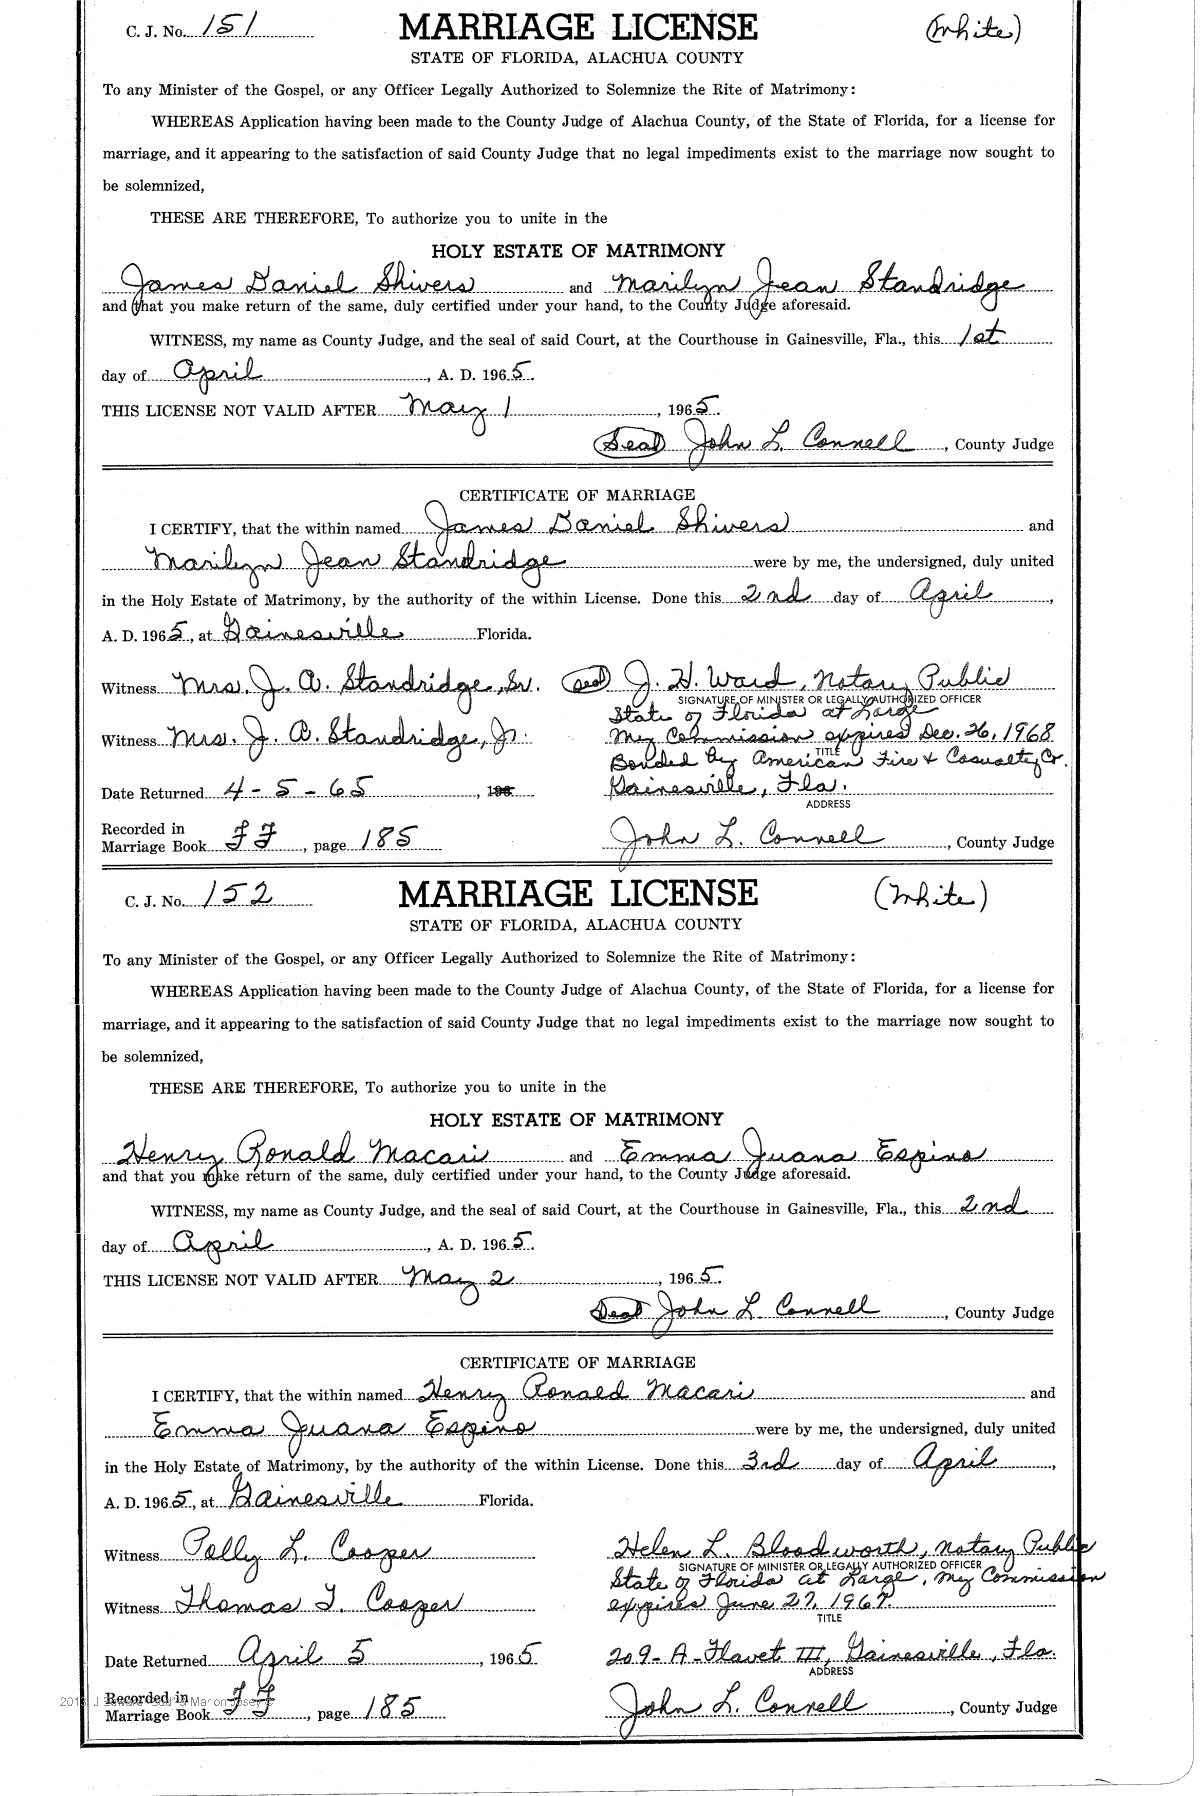 C. J. No. 151 MARRIAGE LICENSE (White)
STATE OF FLORIDA, ALACHUA COUNTY
To any Minister of the Gospel, or any Officer Legally Authorized to Solemnize the Rite of Matrimony:
WHEREAS Application having been made to the County Judge of Alachua County, of the State of Florida, for a license for
marriage, and it appearing to the satisfaction of said County Judge that no legal impediments exist to the marriage now sought to
be solemnized,
THESE ARE THEREFORE, To authorize you to unite in the
HOLY ESTATE OF MATRIMONY
James Daniel Shivers and Marilyn Jean Standridge
and that you make return of the same, duly certified under your hand, to the County Judge aforesaid.
WITNESS, my name as County Judge, and the seal of said Court, at the Courthouse in Gainesville, Fla., this 1st
day of April, A. D. 1965.
THIS LICENSE NOT VALID AFTER May 1, 1965.
(Seal) John L. Connell, County Judge
CERTIFICATE OF MARRIAGE
I CERTIFY, that the within named James Daniel Shivers and
Marilyn Jean Standridge were by me, the undersigned, duly united
in the Holy Estate of Matrimony, by the authority of the within License. Done this 2nd day of April,
A. D. 1965, at Gainesville Florida.
Witness Mrs. J. A. Standridge, Sr. (Seal) J. H. Ward, Notary Public
SIGNATURE OF MINISTER OR LEGALLY AUTHORIZED OFFICER
State of Florida at Large
Witness Mrs. J. A. Standridge, Jr. My Commission expires Dec. 26, 1968
TITLE
Bonded by American Fire & Casualty Co.
Date Returned 4-5-65, 196 Gainesville, Fla.
ADDRESS
Recorded in
Marriage Book FF, page 185 John L. Connell, County Judge
C. J. No. 152 MARRIAGE LICENSE (White)
STATE OF FLORIDA, ALACHUA COUNTY
To any Minister of the Gospel, or any Officer Legally Authorized to Solemnize the Rite of Matrimony:
WHEREAS Application having been made to the County Judge of Alachua County, of the State of Florida, for a license for
marriage, and it appearing to the satisfaction of said County Judge that no legal impediments exist to the marriage now sought to
be solemnized,
THESE ARE THEREFORE, To authorize you to unite in the
HOLY ESTATE OF MATRIMONY
Henry Ronald Macari and Emma Juana Espino
and that you make return of the same, duly certified under your hand, to the County Judge aforesaid.
WITNESS, my name as County Judge, and the seal of said Court, at the Courthouse in Gainesville, Fla., this 2nd
day of April, A. D. 1965.
THIS LICENSE NOT VALID AFTER May 2, 1965.
(Seal) John L. Connell, County Judge
CERTIFICATE OF MARRIAGE
I CERTIFY, that the within named Henry Ronald Macari and
Emma Juana Espino were by me, the undersigned, duly united
in the Holy Estate of Matrimony, by the authority of the within License. Done this 3rd day of April,
A. D. 1965, at Gainesville Florida.
Witness Polly L. Cooper Helen L. Bloodworth, Notary Public
SIGNATURE OF MINISTER OR LEGALLY AUTHORIZED OFFICER
State of Florida at Large, My Commission
Witness Thomas T. Cooper expires June 27, 1967.
TITLE
Date Returned April 5, 1965 209-A-Flavet III, Gainesville, Fla.
ADDRESS
Recorded in
Marriage Book FF, page 185 John L. Connell, County Judge